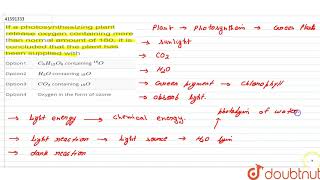 41591333
If a photosynthesizing plant
release oxygen containing more
than normal amount of 18O, it is
concluded that the plant has
been supplied with
Option1 C₆H₁₂O₆ containing ¹⁸O
Option2 H₂O containing ₁₈O
Option3 CO₂ containing ₁₈O
Option4 Oxygen in the form of ozone
Plant → Photosynthesis → Green Plants
→ Sunlight
→ CO₂
→ H₂O
→ Green pigment → Chlorophyll
→ absorb light.
photolysis of water
→ light energy → chemical energy.
→ light reaction → light source → H₂O
→ dark reaction
doubtnut